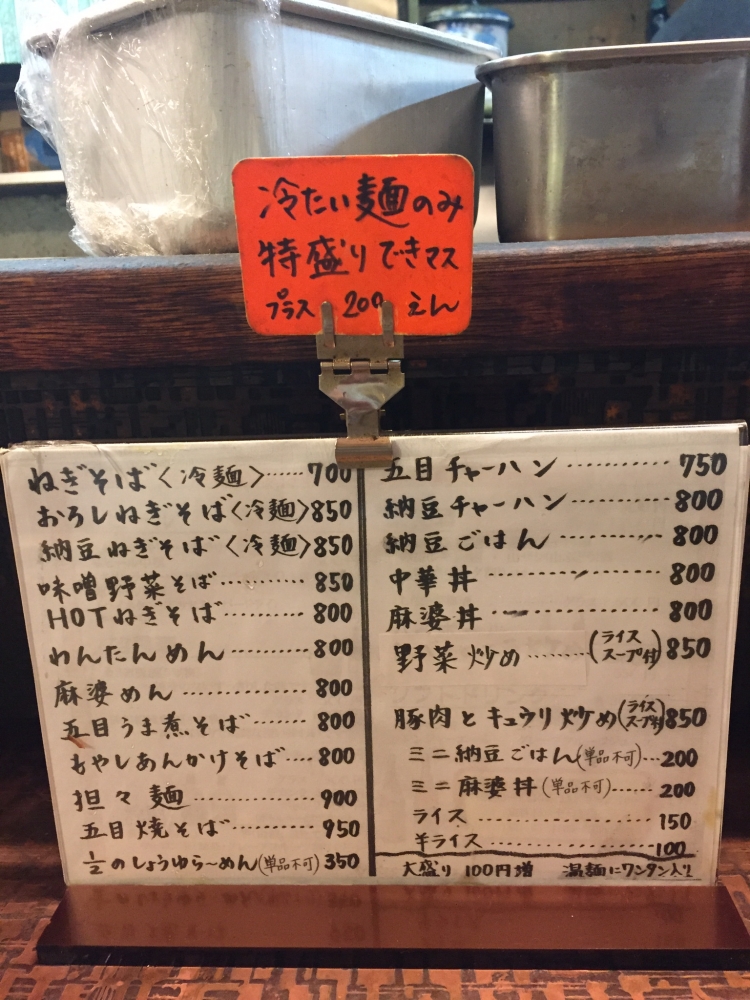 冷たい麺のみ
特盛りできマス
プラス 200 えん
ねぎそば〈冷麺〉……700
おろしねぎそば〈冷麺〉850
納豆ねぎそば〈冷麺〉850
味噌野菜そば………850
HOTねぎそば………800
わんたんめん………800
麻婆めん…………800
五目うま煮そば……800
もやしあんかけそば…800
担々麺……………900
五目焼そば…………950
½のしょうゆら〜めん(単品不可)350
五目チャーハン…………750
納豆チャーハン…………800
納豆ごはん……………800
中華丼………………800
麻婆丼………………800
野菜炒め………(ライススープ付)850
豚肉とキュウリ炒め(ライススープ付)850
ミニ納豆ごはん(単品不可)…200
ミニ麻婆丼(単品不可)……200
ライス…………………150
半ライス………………100
大盛り 100円増 湯麺にワンタン入り